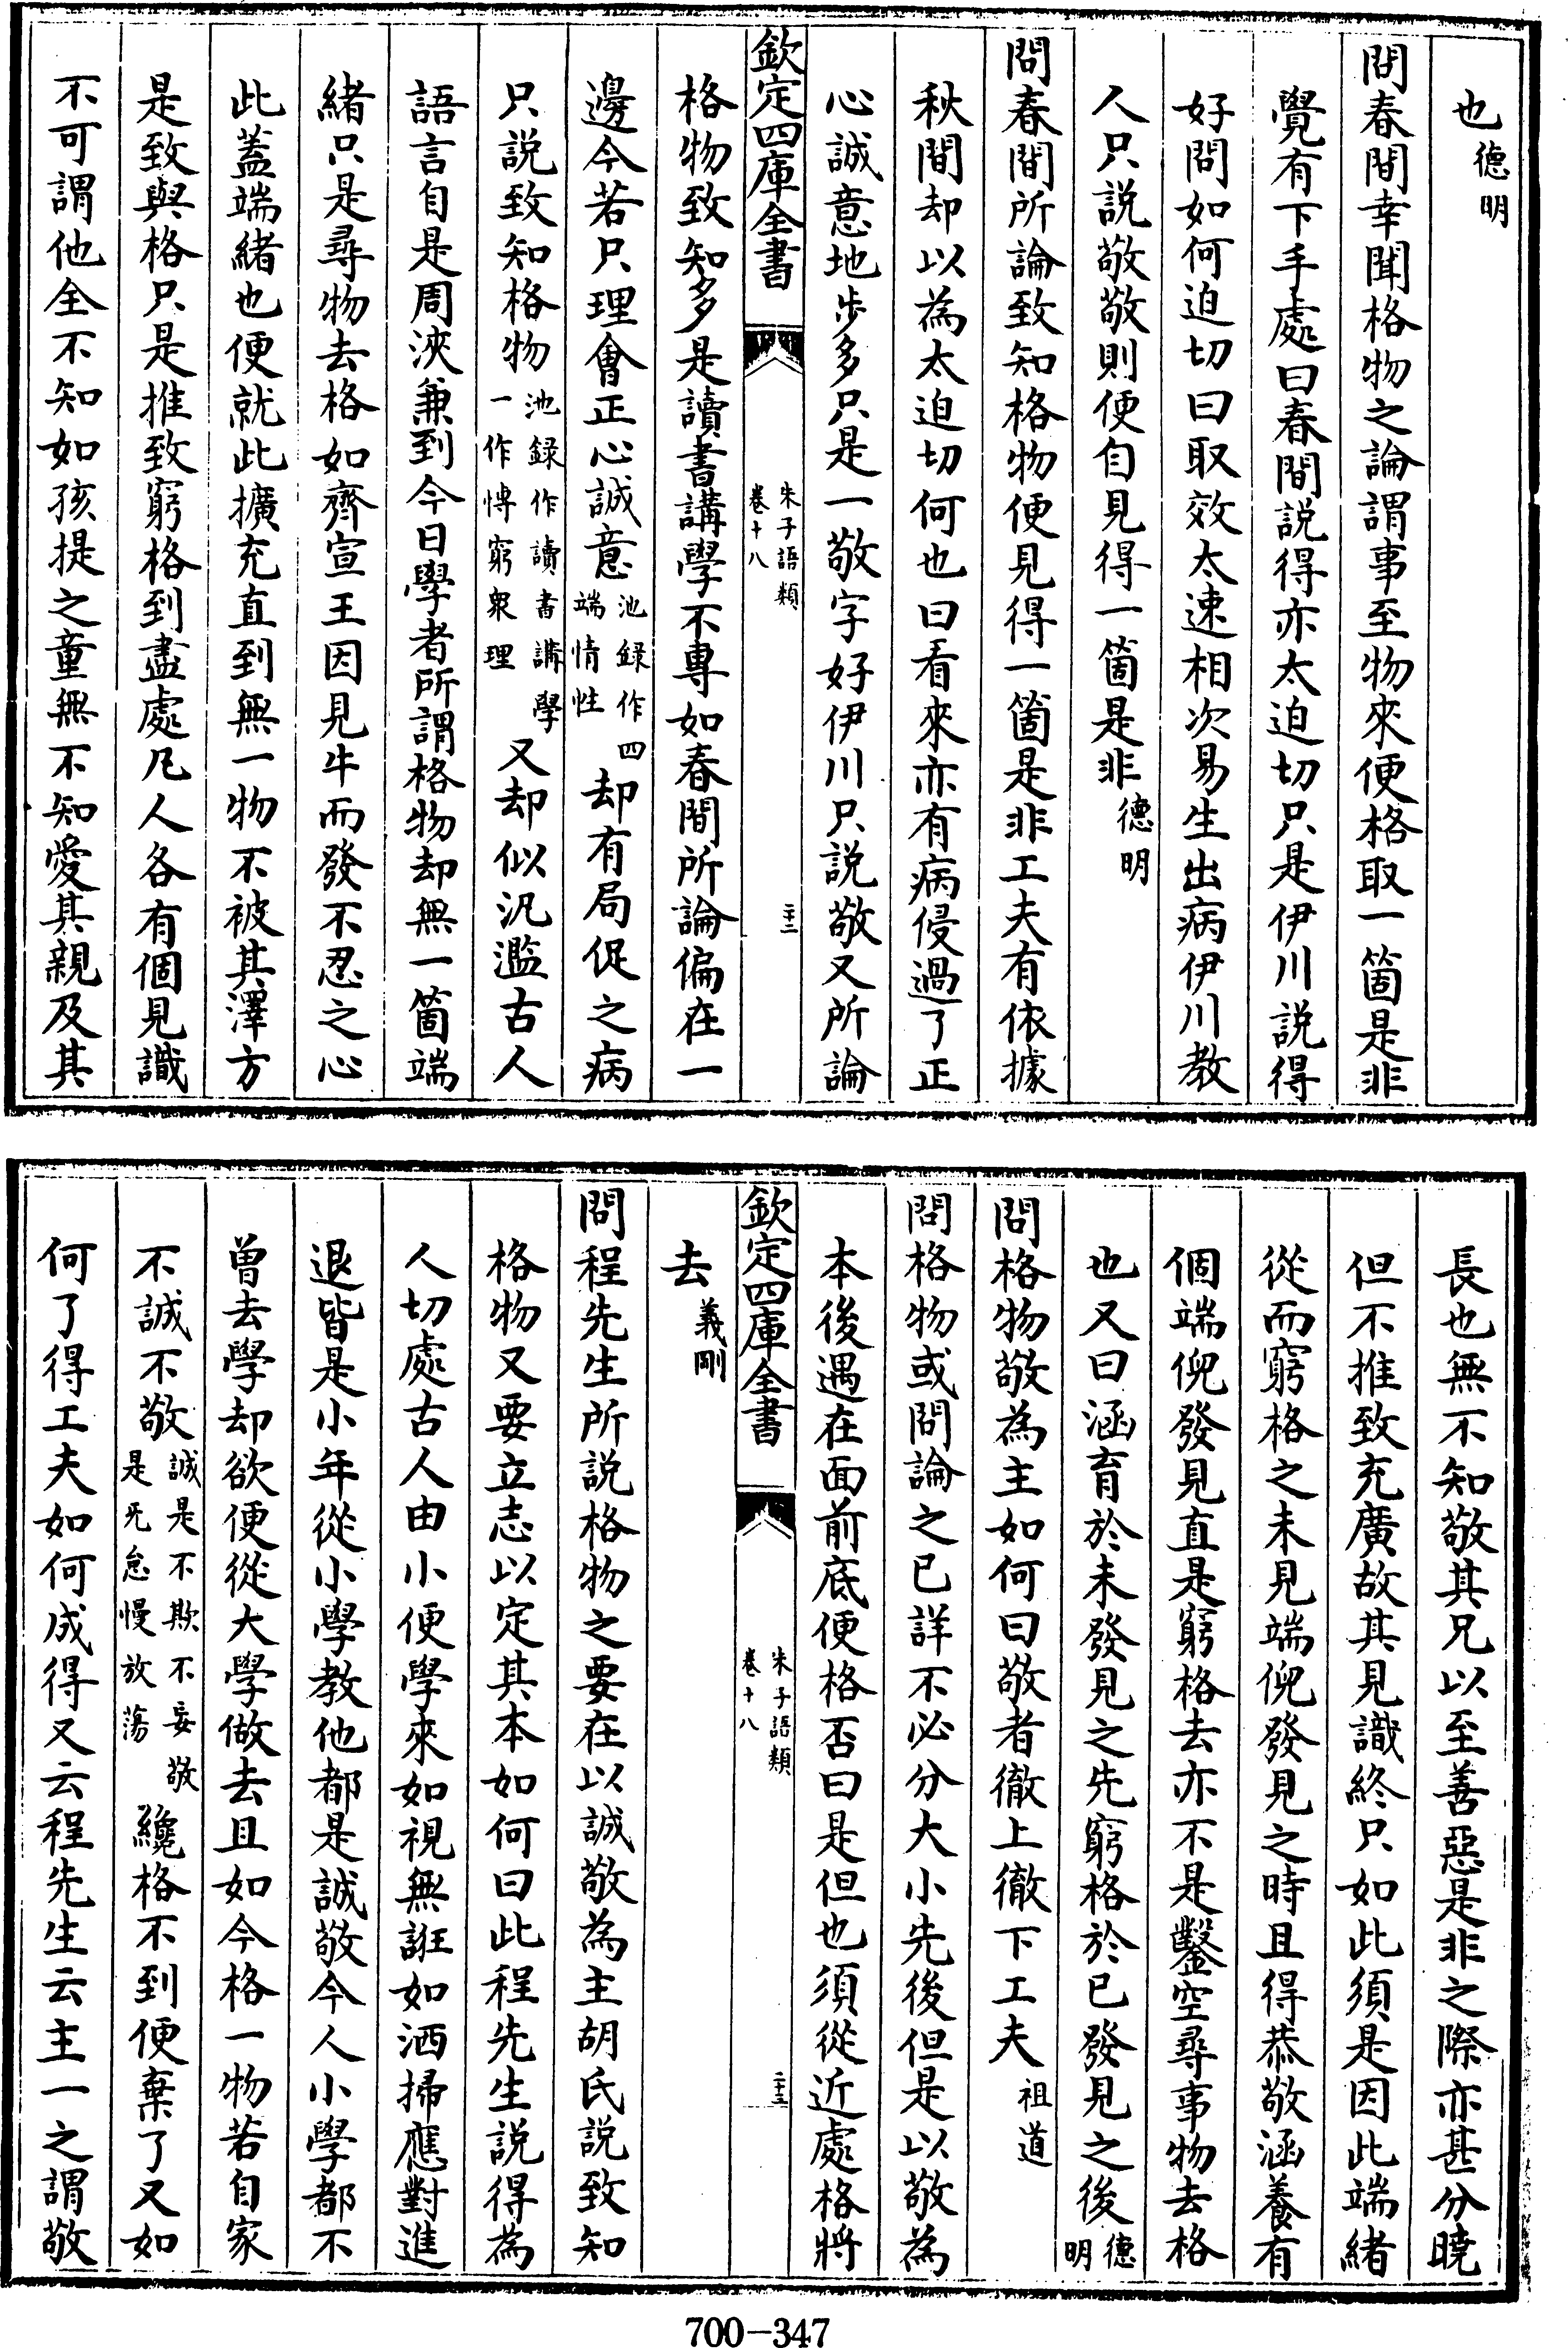 也德明
問春間幸聞格物之論謂事至物來便格取一箇是非
覺有下手處曰春間說得亦太迫切只是伊川說得
好問如何迫切曰取效太速相次易生出病伊川教
人只說敬敬則便自見得一箇是非德明
問春間所論致知格物便見得一箇是非工夫有依據
秋間却以為太迫切何也曰看來亦有病侵過了正
心誠意地步多只是一敬字好伊川只說敬又所論
欽定四庫全書
朱子語類
卷十八
二十二
格物致知多是讀書講學不專如春間所論偏在一
邊今若只理會正心誠意池録作四端情性却有局促之病
只說致知格物池録作讀書講學一作博窮衆理又却似汎濫古人
語言自是周浹兼到今日學者所謂格物却無一箇端
緒只是尋物去格如齊宣王因見牛而發不忍之心
此蓋端緒也便就此擴充直到無一物不被其澤方
是致與格只是推致窮格到盡處凡人各有個見識
不可謂他全不知如孩提之童無不知愛其親及其
長也無不知敬其兄以至善惡是非之際亦甚分曉
但不推致充廣故其見識終只如此須是因此端緒
從而窮格之未見端倪發見之時且得恭敬涵養有
個端倪發見直是窮格去亦不是鑿空尋事物去格
也又曰涵育於未發見之先窮格於已發見之後德明
問格物敬為主如何曰敬者徹上徹下工夫祖道
問格物或問論之已詳不必分大小先後但是以敬為
本後遇在面前底便格否曰是但也須從近處格將
欽定四庫全書
朱子語類
卷十八
二十三
去義剛
問程先生所說格物之要在以誠敬為主胡氏說致知
格物又要立志以定其本如何曰此程先生說得為
人切處古人由小便學來如視無誑如洒掃應對進
退皆是小年從小學教他都是誠敬今人小學都不
曾去學却欲便從大學做去且如今格一物若自家
不誠不敬誠是不欺不妄敬是无怠慢放蕩纔格不到便棄了又如
何了得工夫如何成得又云程先生云主一之謂敬
700-347